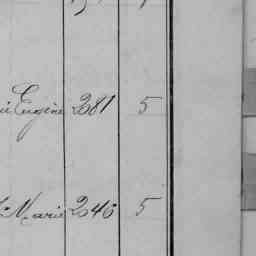 Eugène 281 5
Marie 246 5